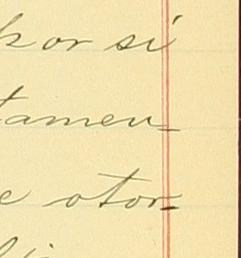 por si
tamen-
e otor-